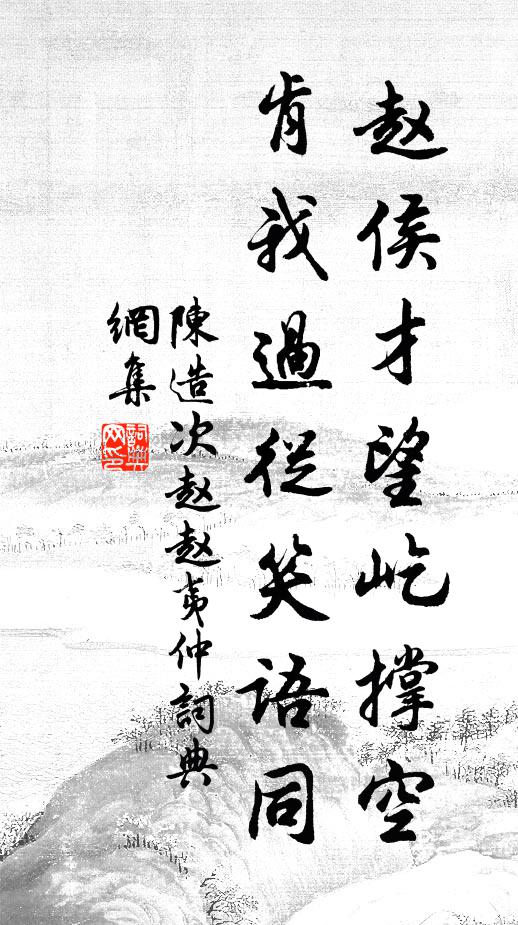 赵侯才望屹撑空
肯我過從笑语同
陳造次赵赵夷仲詞典
網集